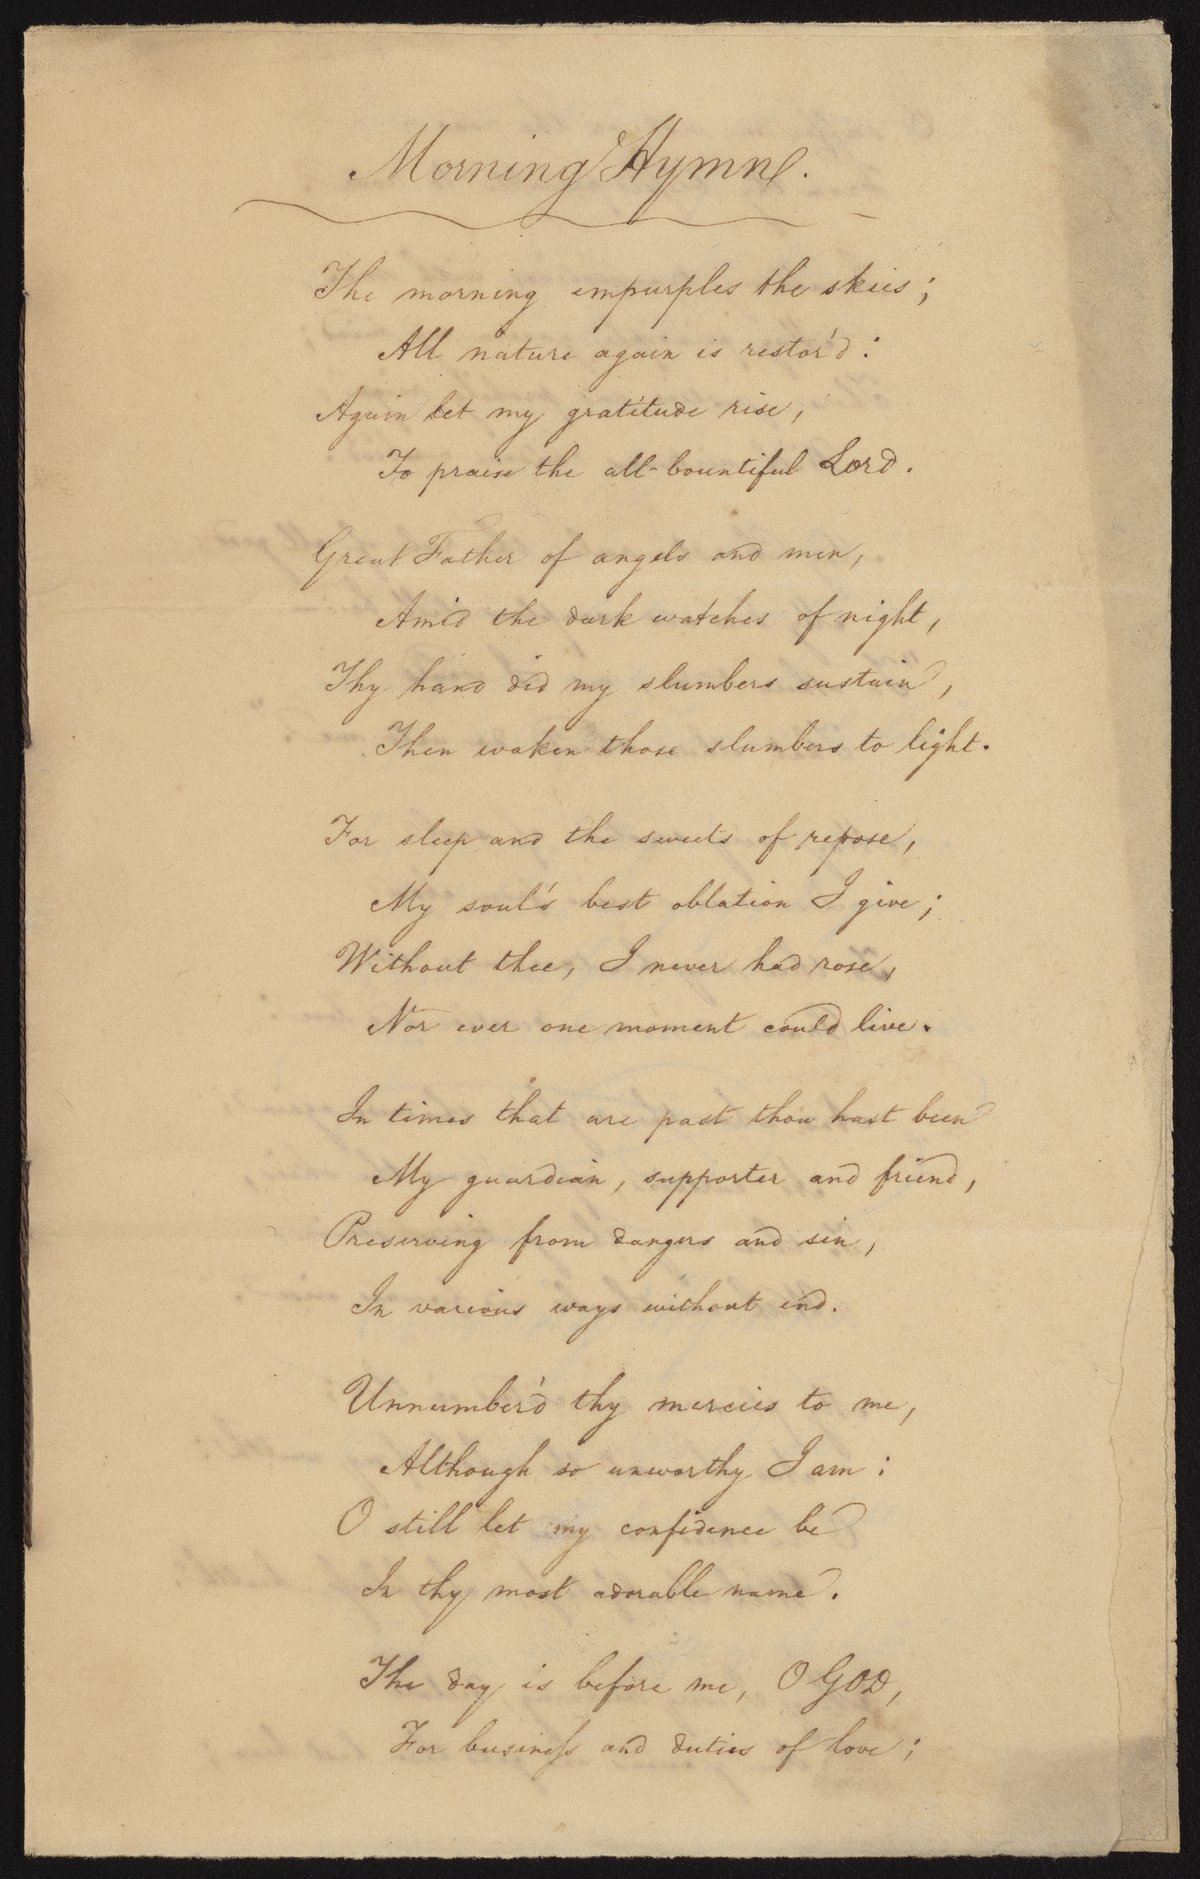 Morning Hymn.
The morning empurples the skies;
All nature again is restor'd:
Again let my gratitude rise,
To praise the all-bountiful Lord.
Great Father of angels and men,
Amid the dark watches of night,
Thy hand did my slumbers sustain,
Then waken those slumbers to light.
For sleep and the sweets of repose,
My soul's best oblation I give;
Without thee, I never had rose,
Nor ever one moment could live.
In times that are past thou hast been
My guardian, supporter and friend,
Preserving from dangers and sin,
In various ways without end.
Unnumber'd thy mercies to me,
Although so unworthy I am:
O still let my confidence be
In thy most adorable name.
The day is before me, O GOD,
For busineſs and duties of love;